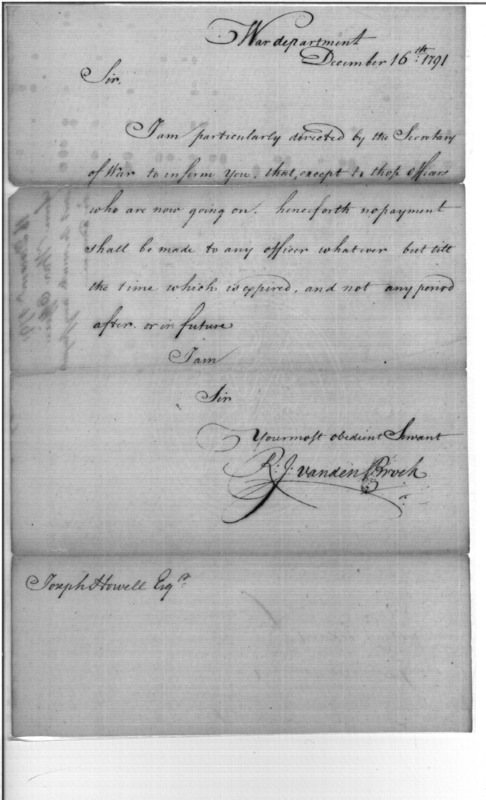 War department
December 16th 1791
Sir,
I am particularly directed by the Secretary
of War to inform You, that, except to those officers
who are now going on. henceforth no payment
shall be made to any officer whatever but till
the time which is expired, and not any period
after. or in future
I am
Sir
Your most obedient Servant
R: J: vanden Broek
Joseph Howell Esqr